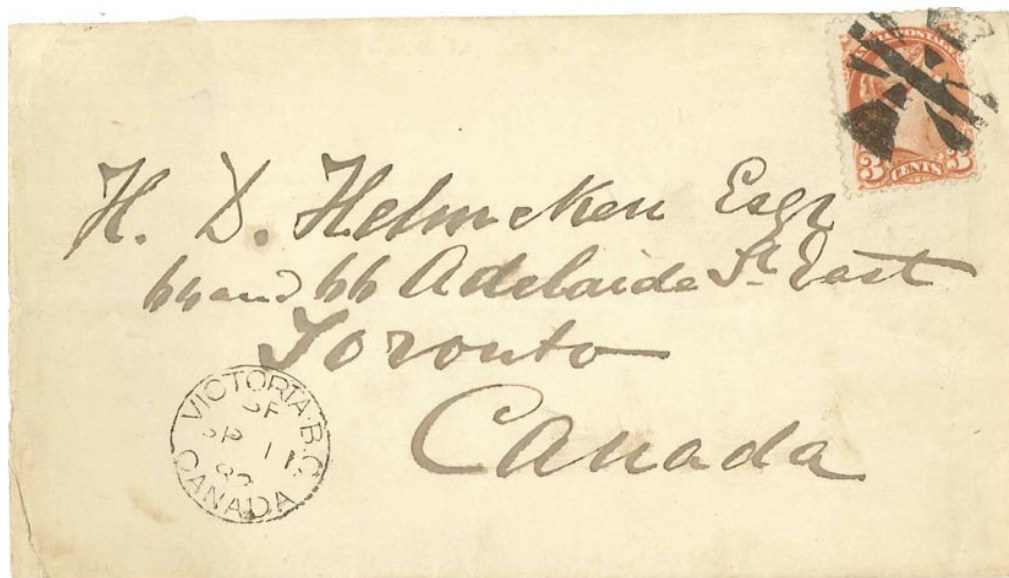 POSTAGE
3 CENTS 3
H. D. Helmcken Esqr
64 and 66 Adelaide St East
Toronto
Canada
VICTORIA·B.C.
SP 11
CANADA